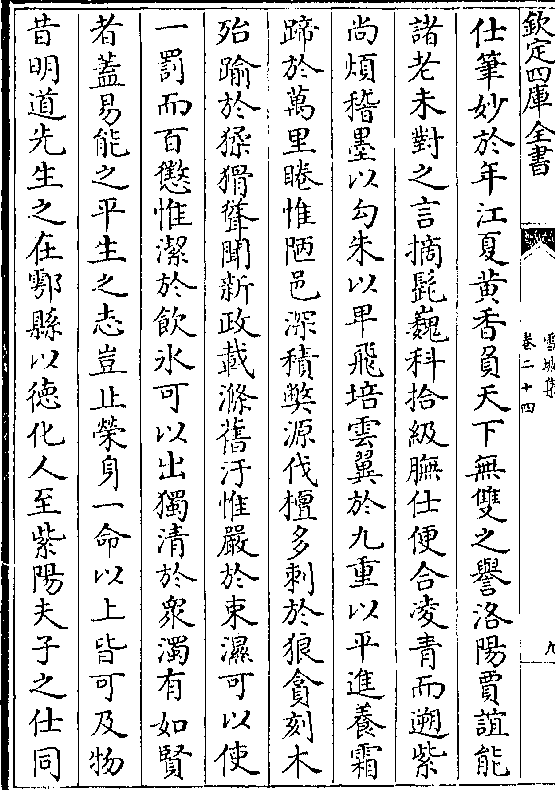 欽定四庫全書
雪坡集
卷二十四
九
仕筆妙於年江夏黄香負天下無雙之譽洛陽賈誼能
諸老未對之言摘髭巍科拾級膴仕便合凌青而遡紫
尚煩稽墨以勾朱以卑飛培雲翼於九重以平進養霜
蹄於萬里睠惟陋邑深積弊源伐檀多刺於狼貪刻木
殆踰於猱猾聳聞新政載滌舊汙惟嚴於束濕可以使
一罰而百懲惟潔於飲氷可以出獨清於衆濁有如賢
者蓋易能之平生之志豈止榮身一命以上皆可及物
昔明道先生之在鄠縣以徳化人至紫陽夫子之仕同